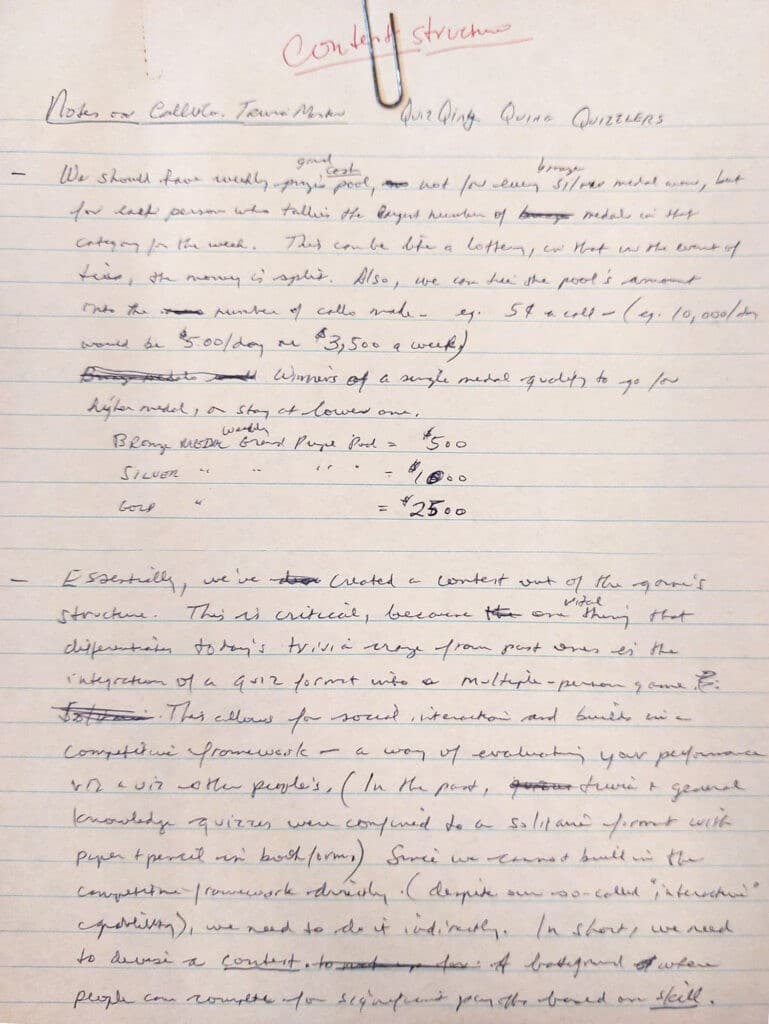 Contest structure
Notes on Trivia Master Quiz Qing Quiz Quizzlers
grand cash bronze
- We should have weekly prize pool, not for every silver medal won, but
for each person who tallies the largest number of medals in that
category for the week. This can be like a lottery, in that in the event of
ties, the money is split. Also, we can tie the pool's amount
into the number of calls made - eg. 5¢ a call - (eg. 10,000/day
would be $5.00/day or $3,500 a week)
Winners of a single medal qualify to go for
higher medal, or stay at lower one.
weekly
Bronze MEDAL Grand Prize Pool = $500
SILVER " " " " = $1000
GOLD " = $2500
- Essentially, we've created a contest out of the game's
vital
structure. This is critical, because one thing that
differentiates today's trivia craze from past ones is the
integration of a quiz format into a multiple-person game.
This allows for social interaction and builds in a
competitive framework - a way of evaluating your performance
viz a viz other people's. (In the past, trivia + general
knowledge quizzes were confined to a solitaire format with
paper + pencil in book form) Since we cannot build in the
competitive framework directly (despite our so-called "interactive"
capability), we need to do it indirectly. In short, we need
to devise a contest. A where
people can compete for significant payoffs based on skill.